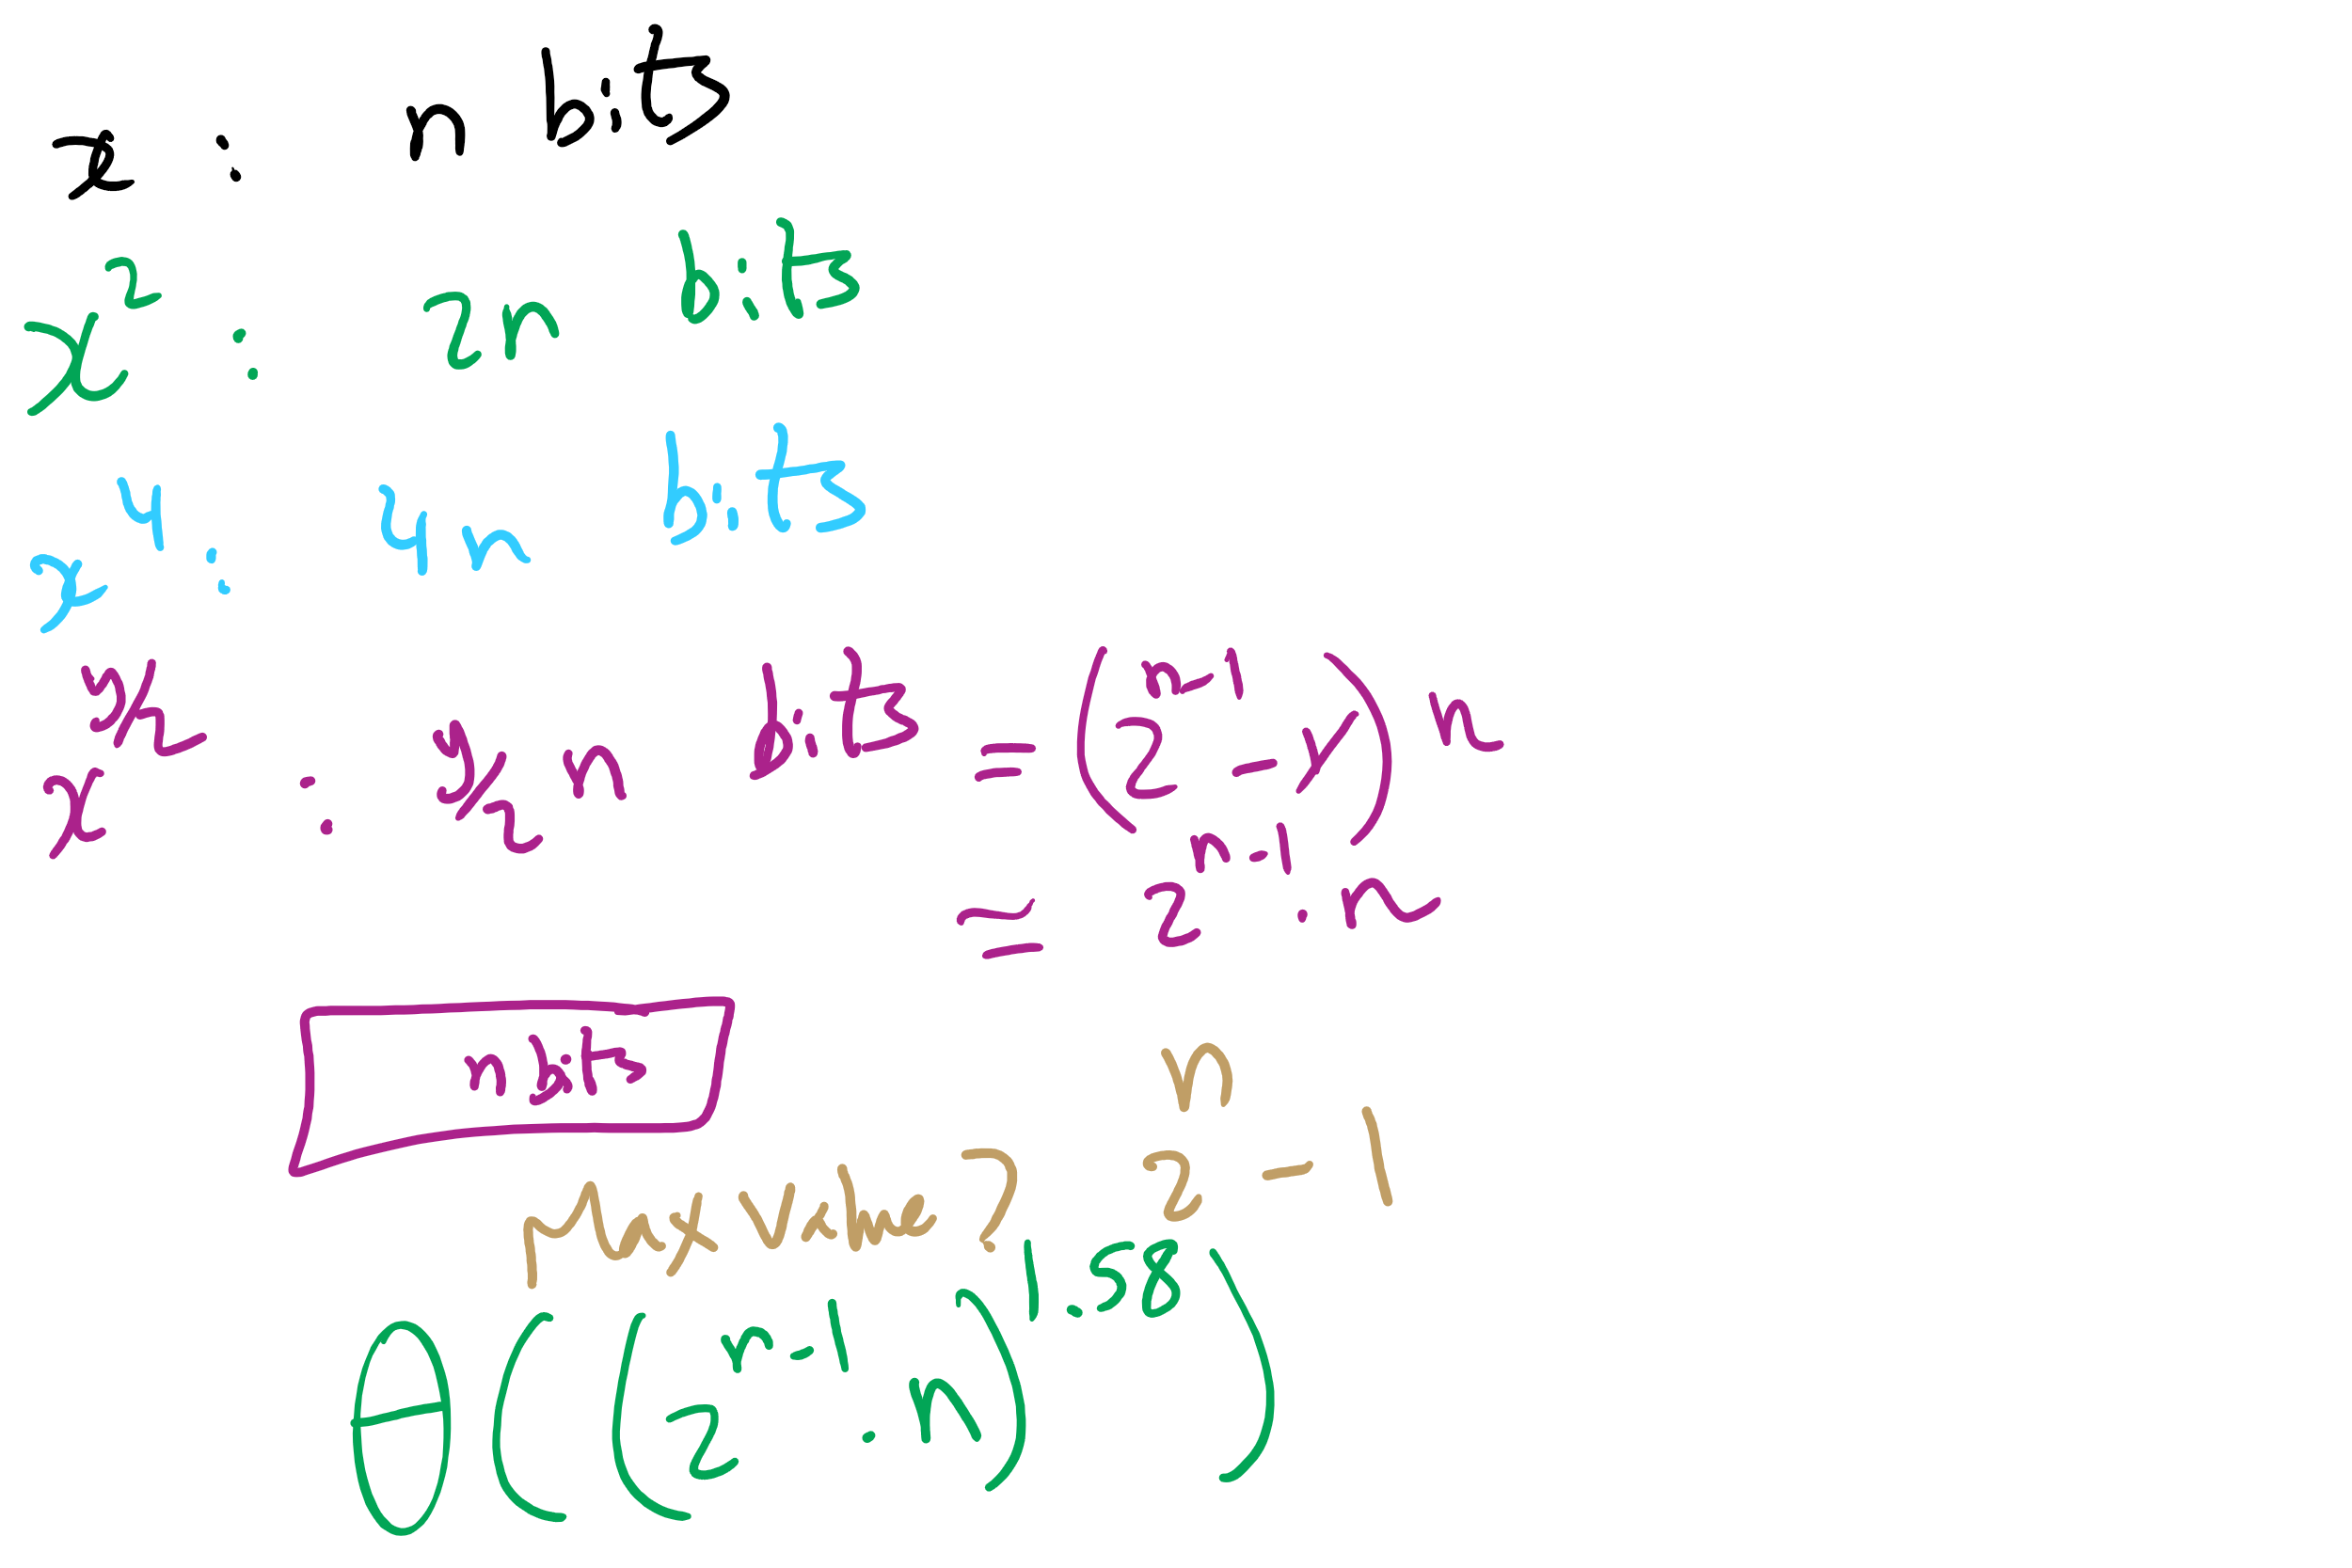 x : n bits
x² : 2n bits
x⁴ : 4n bits
x^(y/2) : y/2 n bits = (2^(n-1) - y) n
≈ 2^(n-1) · n
n bits
Max value? 2^n - 1
θ((2^(n-1) · n)^1.58)